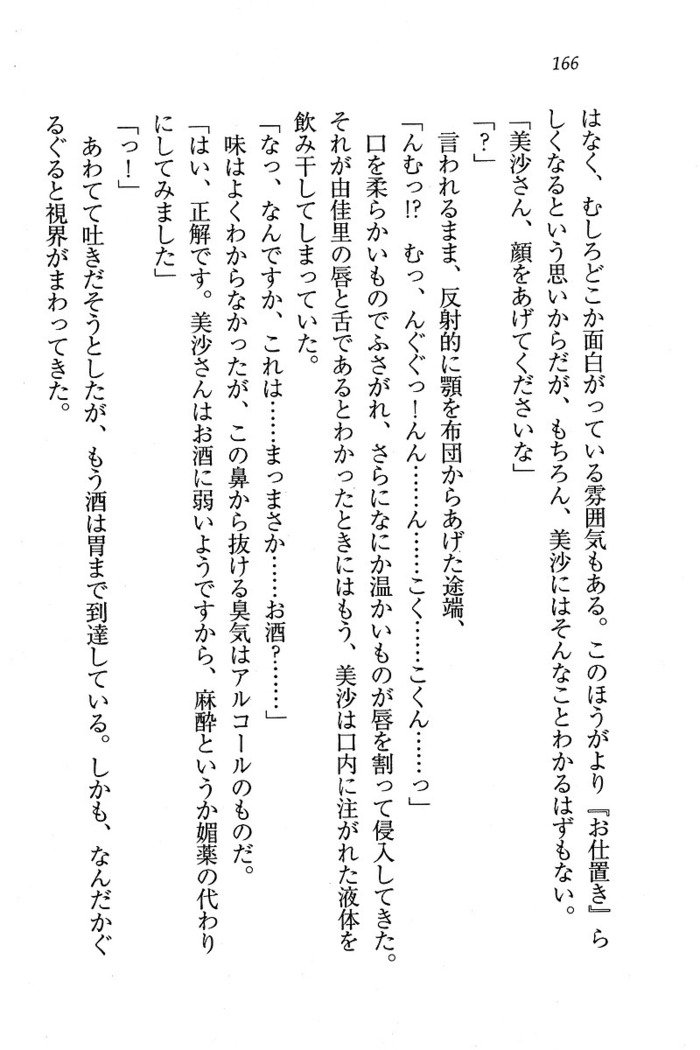 166
はなく、むしろどこか面白がっている雰囲気もある。このほうがより『お仕置き』ら
しくなるという思いからだが、もちろん、美沙にはそんなことわかるはずもない。
「美沙さん、顔をあげてくださいな」
「？」
言われるまま、反射的に顎を布団からあげた途端、
「んむっ!?　むっ、んぐぐっ！んん……ん……こく……こくん……っ」
口を柔らかいものでふさがれ、さらになにか温かいものが唇を割って侵入してきた。
それが由佳里の唇と舌であるとわかったときにはもう、美沙は口内に注がれた液体を
飲み干してしまっていた。
「なっ、なんですか、これは……まっまさか……お酒？……」
味はよくわからなかったが、この鼻から抜ける臭気はアルコールのものだ。
「はい、正解です。美沙さんはお酒に弱いようですから、麻酔というか媚薬の代わり
にしてみました」
「っ！」
あわてて吐きだそうとしたが、もう酒は胃まで到達している。しかも、なんだかぐ
るぐると視界がまわってきた。